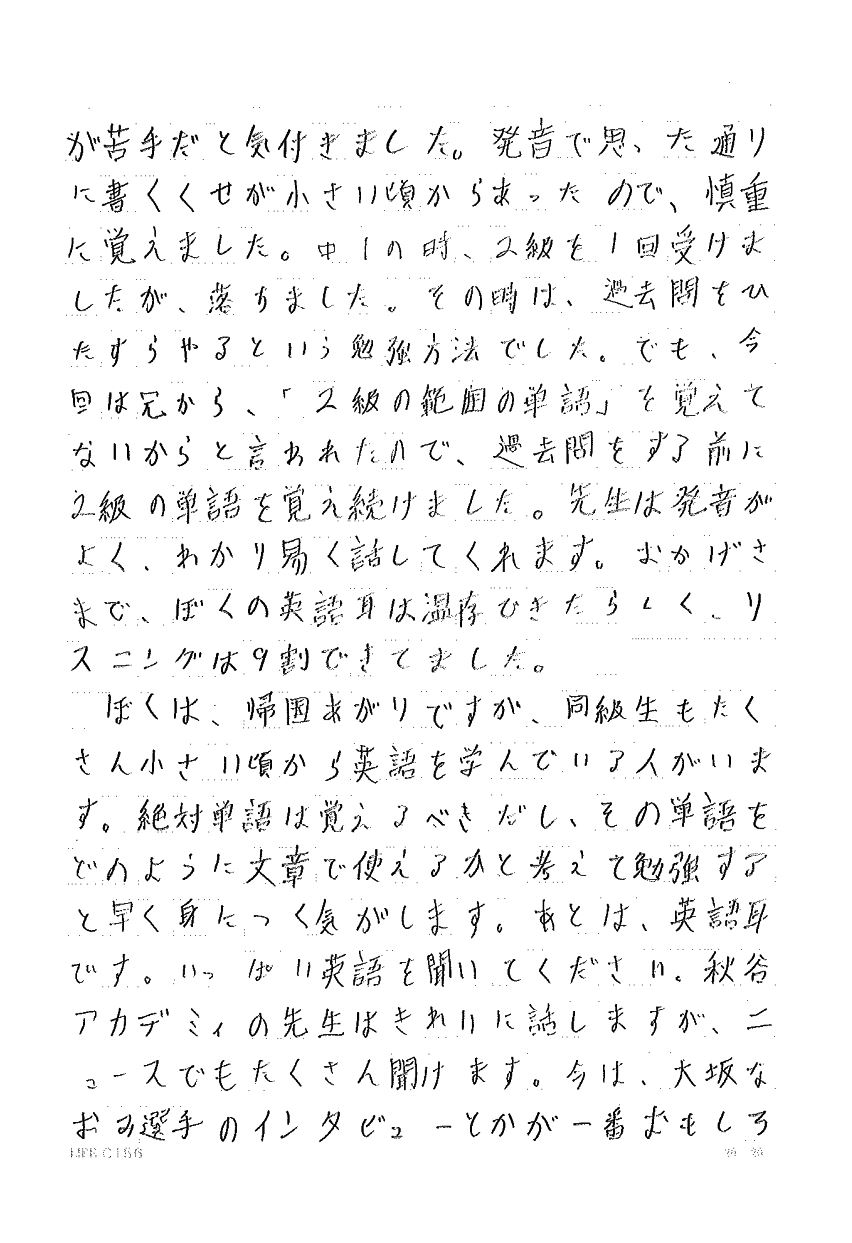 が苦手だと気付きました。発音で思った通り
に書くくせが小さい頃からあったので、慎重
に覚えました。中1の時、2級を1回受けま
したが、落ちました。その時は、過去問をひ
たすらやるという勉強方法でした。でも、今
回は兄から、「2級の範囲の単語」を覚えて
ないからと言われたので、過去問をする前に
2級の単語を覚え続けました。先生は発音が
よく、わかり易く話してくれます。おかげさ
まで、ぼくの英語耳は温存できたらしく、リ
スニングは9割できてました。
ぼくは、帰国あがりですが、同級生もたく
さん小さい頃から英語を学んでいる人がいま
す。絶対単語は覚えるべきだし、その単語を
どのように文章で使えるかと考えて勉強する
と早く身につく気がします。あとは、英語耳
です。いっぱい英語を聞いてください。秋谷
アカデミィの先生はきれいに話しますが、ニ
ュースでもたくさん聞けます。今は、大坂な
おみ選手のインタビューとかが一番おもしろ
LIFE C156
20 20